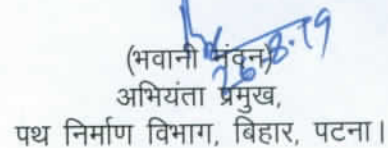 26.8.19
(भवानी नंदन)
अभियंता प्रमुख,
पथ निर्माण विभाग, बिहार, पटना।